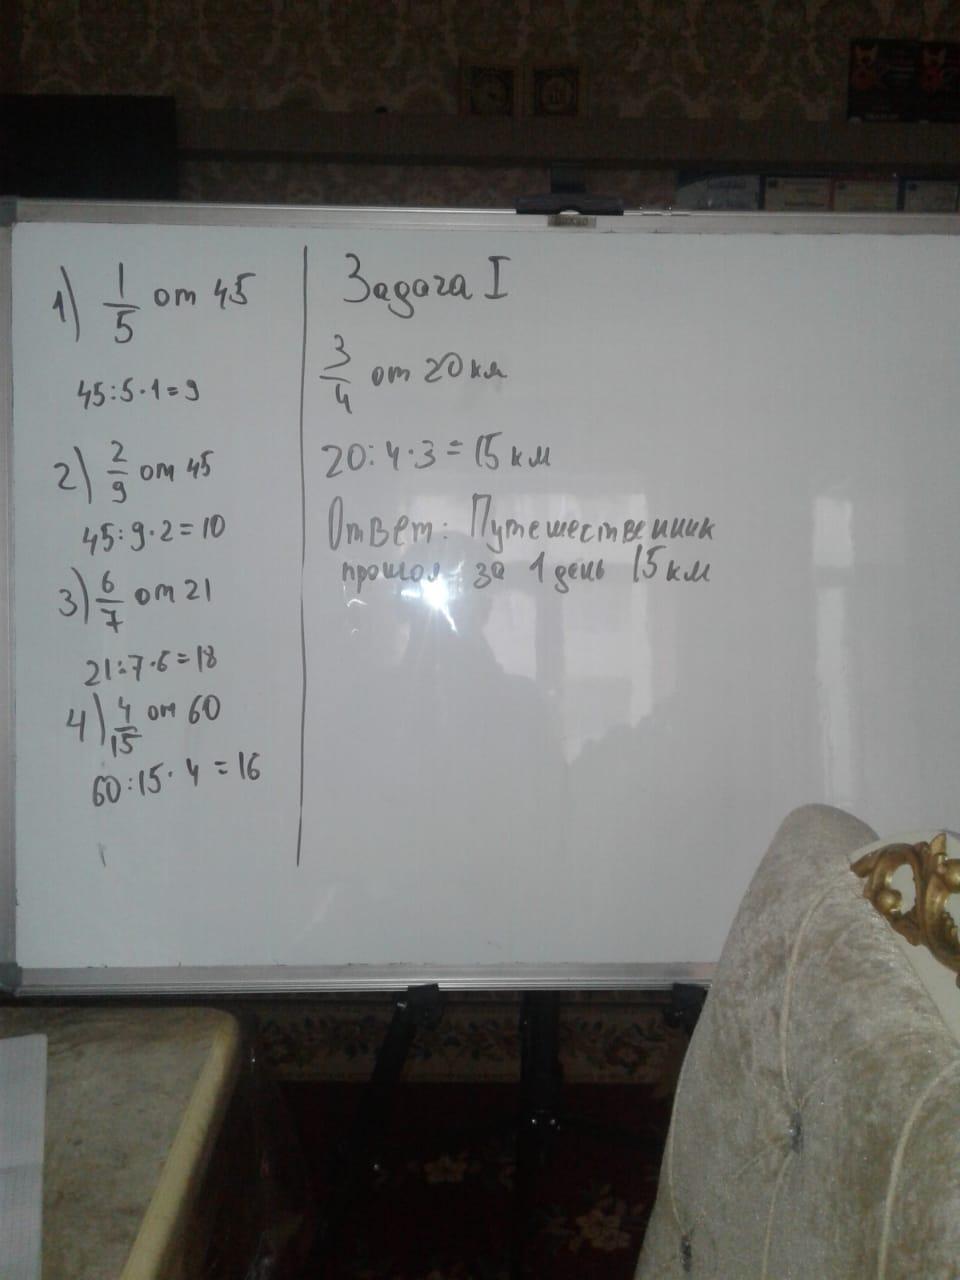 1) 1/5 от 45
45:5·1=9
2) 2/9 от 45
45:9·2=10
3) 6/7 от 21
21:7·6=18
4) 4/15 от 60
60:15·4=16
Задача I
3/4 от 20 км
20:4·3=15 км
Ответ: Путешественник
прошол за 1 день 15 км